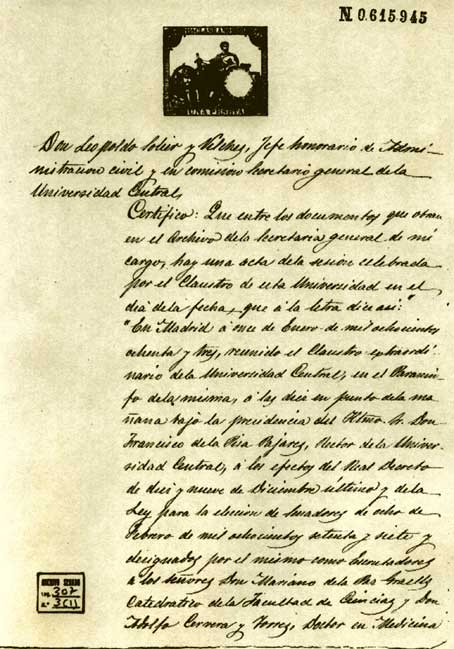 N 0.615.945
UNA PESETA
Don Leopoldo Solier y Vilches, Jefe honorario de Admi-
nistracion civil y en comision Secretario general de la
Universidad Central,
Certifico: Que entre los documentos que obran
en el Archivo de la Secretaria general de mi
cargo, hay una acta de la sesion celebrada
por el Claustro de esta Universidad en el
dia de la fecha, que á la letra dice asi:"
"En Madrid á once de Enero de mil ochocientos
ochenta y tres, reunido el Claustro extraordi-
nario de la Universidad Central, en el Paranin-
fo de la misma, á las diez en punto de la ma-
ñana bajo la presidencia del Iltmo Sr. Don
Francisco de la Pisa Pajares, Rector de la Univer-
sidad Central, á los efectos del Real Decreto
de diez y nueve de Diciembre último y de la
Ley para la eleccion de Senadores de ocho de
Febrero de mil ochocientos setenta y siete y
designados por el mismo como Escrutadores
á los señores Don Mariano de la Paz Graells
Catedratico de la Facultad de Ciencias y Don
Adolfo Cervera y Torres, Doctor en Medicina
ARCHIVO SENADO
LEG. 307
N.º